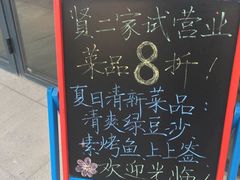 贤二家试营业
菜品8折!
夏日清新菜品:
清爽绿豆沙
素烤鱼上上签
欢迎光临!